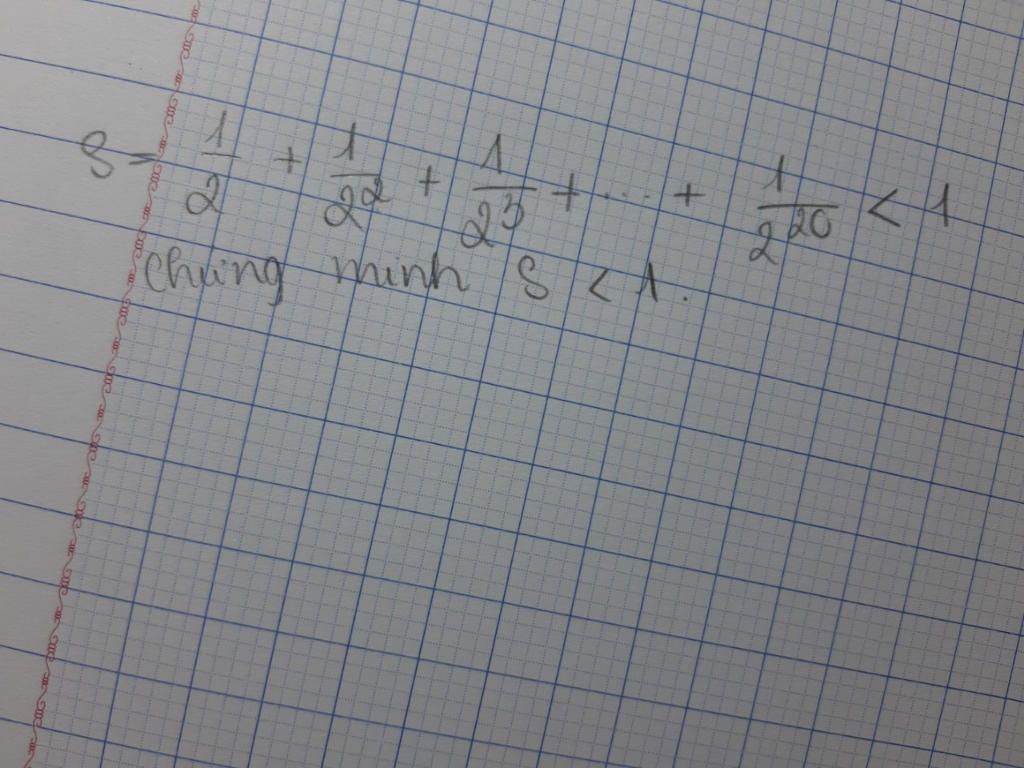 S = 1/2 + 1/2² + 1/2³ + ... + 1/2²⁰ < 1
Chứng minh S < 1.